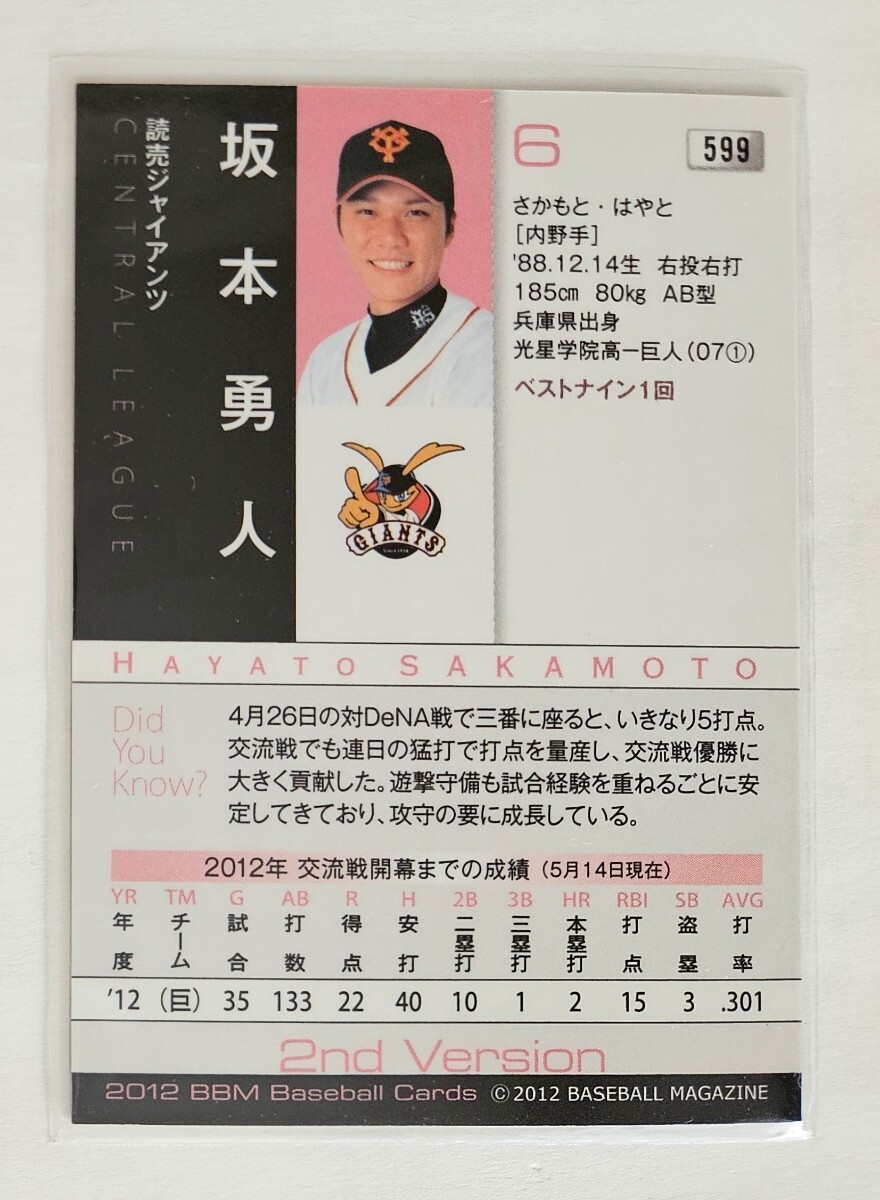 読売ジャイアンツ
CENTRAL LEAGUE
坂本勇人
6
599
さかもと・はやと
[内野手]
'88.12.14生 右投右打
185㎝ 80㎏ AB型
兵庫県出身
光星学院高ー巨人(07①)
ベストナイン1回
GIANTS
Since 1934
HAYATO SAKAMOTO
Did
You
Know?
4月26日の対DeNA戦で三番に座ると、いきなり5打点。
交流戦でも連日の猛打で打点を量産し、交流戦優勝に
大きく貢献した。遊撃守備も試合経験を重ねるごとに安
定してきており、攻守の要に成長している。
2012年 交流戦開幕までの成績 (5月14日現在)
YR TM G AB R H 2B 3B HR RBI SB AVG
年度 チーム 試合 打数 得点 安打 二塁打 三塁打 本塁打 打点 盗塁 打率
'12 (巨) 35 133 22 40 10 1 2 15 3 .301
2nd Version
2012 BBM Baseball Cards ©2012 BASEBALL MAGAZINE